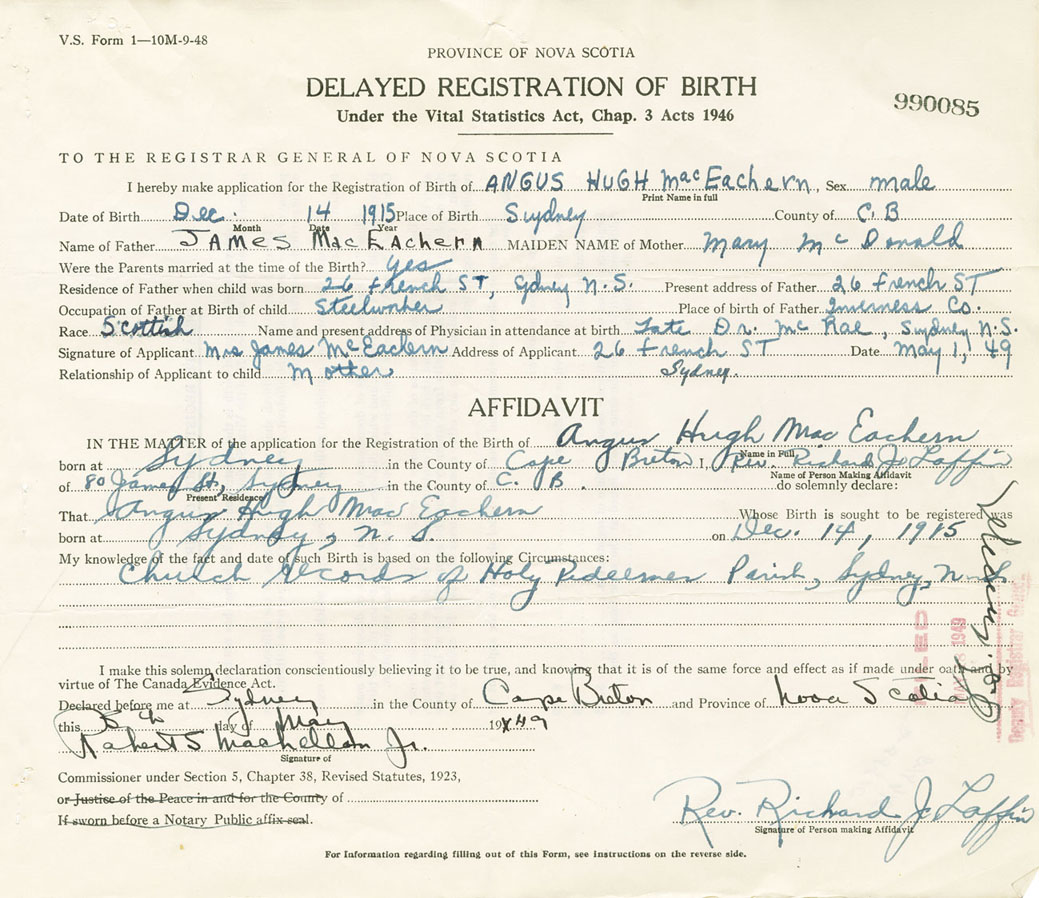 V.S. Form 1—10M-9-48
PROVINCE OF NOVA SCOTIA
DELAYED REGISTRATION OF BIRTH
990085
Under the Vital Statistics Act, Chap. 3 Acts 1946
TO THE REGISTRAR GENERAL OF NOVA SCOTIA
I hereby make application for the Registration of Birth of ANGUS HUGH MacEachern, Sex male
Print Name in full
Date of Birth Dec. 14 1915 Place of Birth Sydney County of C. B
Month Date Year
Name of Father JAMES MacEAchern MAIDEN NAME of Mother Mary McDonald
Were the Parents married at the time of the Birth? yes
Residence of Father when child was born 26 French ST, Sydney N.S. Present address of Father 26 French ST
Occupation of Father at Birth of child Steelworker Place of birth of Father Inverness Co.
Race Scottish Name and present address of Physician in attendance at birth Late Dr. McRae, Sydney N.S.
Signature of Applicant Mrs James McEachern Address of Applicant 26 French ST Date May 1, 49
Relationship of Applicant to child Mother Sydney.
AFFIDAVIT
IN THE MATTER of the application for the Registration of the Birth of Angus Hugh MacEachern
Name in Full
born at Sydney in the County of Cape Breton I, Rev. Richard J. Laffin
Name of Person Making Affidavit
of 80 James St., Sydney in the County of C. B. do solemnly declare:
Present Residence
That Angus Hugh MacEachern Whose Birth is sought to be registered was
born at Sydney, N. S. on Dec. 14, 1915
My knowledge of the fact and date of such Birth is based on the following Circumstances:
Church records of Holy Redeemer Parish, Sydney, N.S.
I make this solemn declaration conscientiously believing it to be true, and knowing that it is of the same force and effect as if made under oath and by
virtue of The Canada Evidence Act.
Declared before me at Sydney in the County of Cape Breton and Province of Nova Scotia
this day of May 1949
Robert S MacLellan Jr.
Signature of
Commissioner under Section 5, Chapter 38, Revised Statutes, 1923,
or Justice of the Peace in and for the County of
If sworn before a Notary Public affix seal.
Rev. Richard J. Laffin
Signature of Person making Affidavit
For Information regarding filling out of this Form, see Instructions on the reverse side.
FILED
1949
Deputy Registrar General